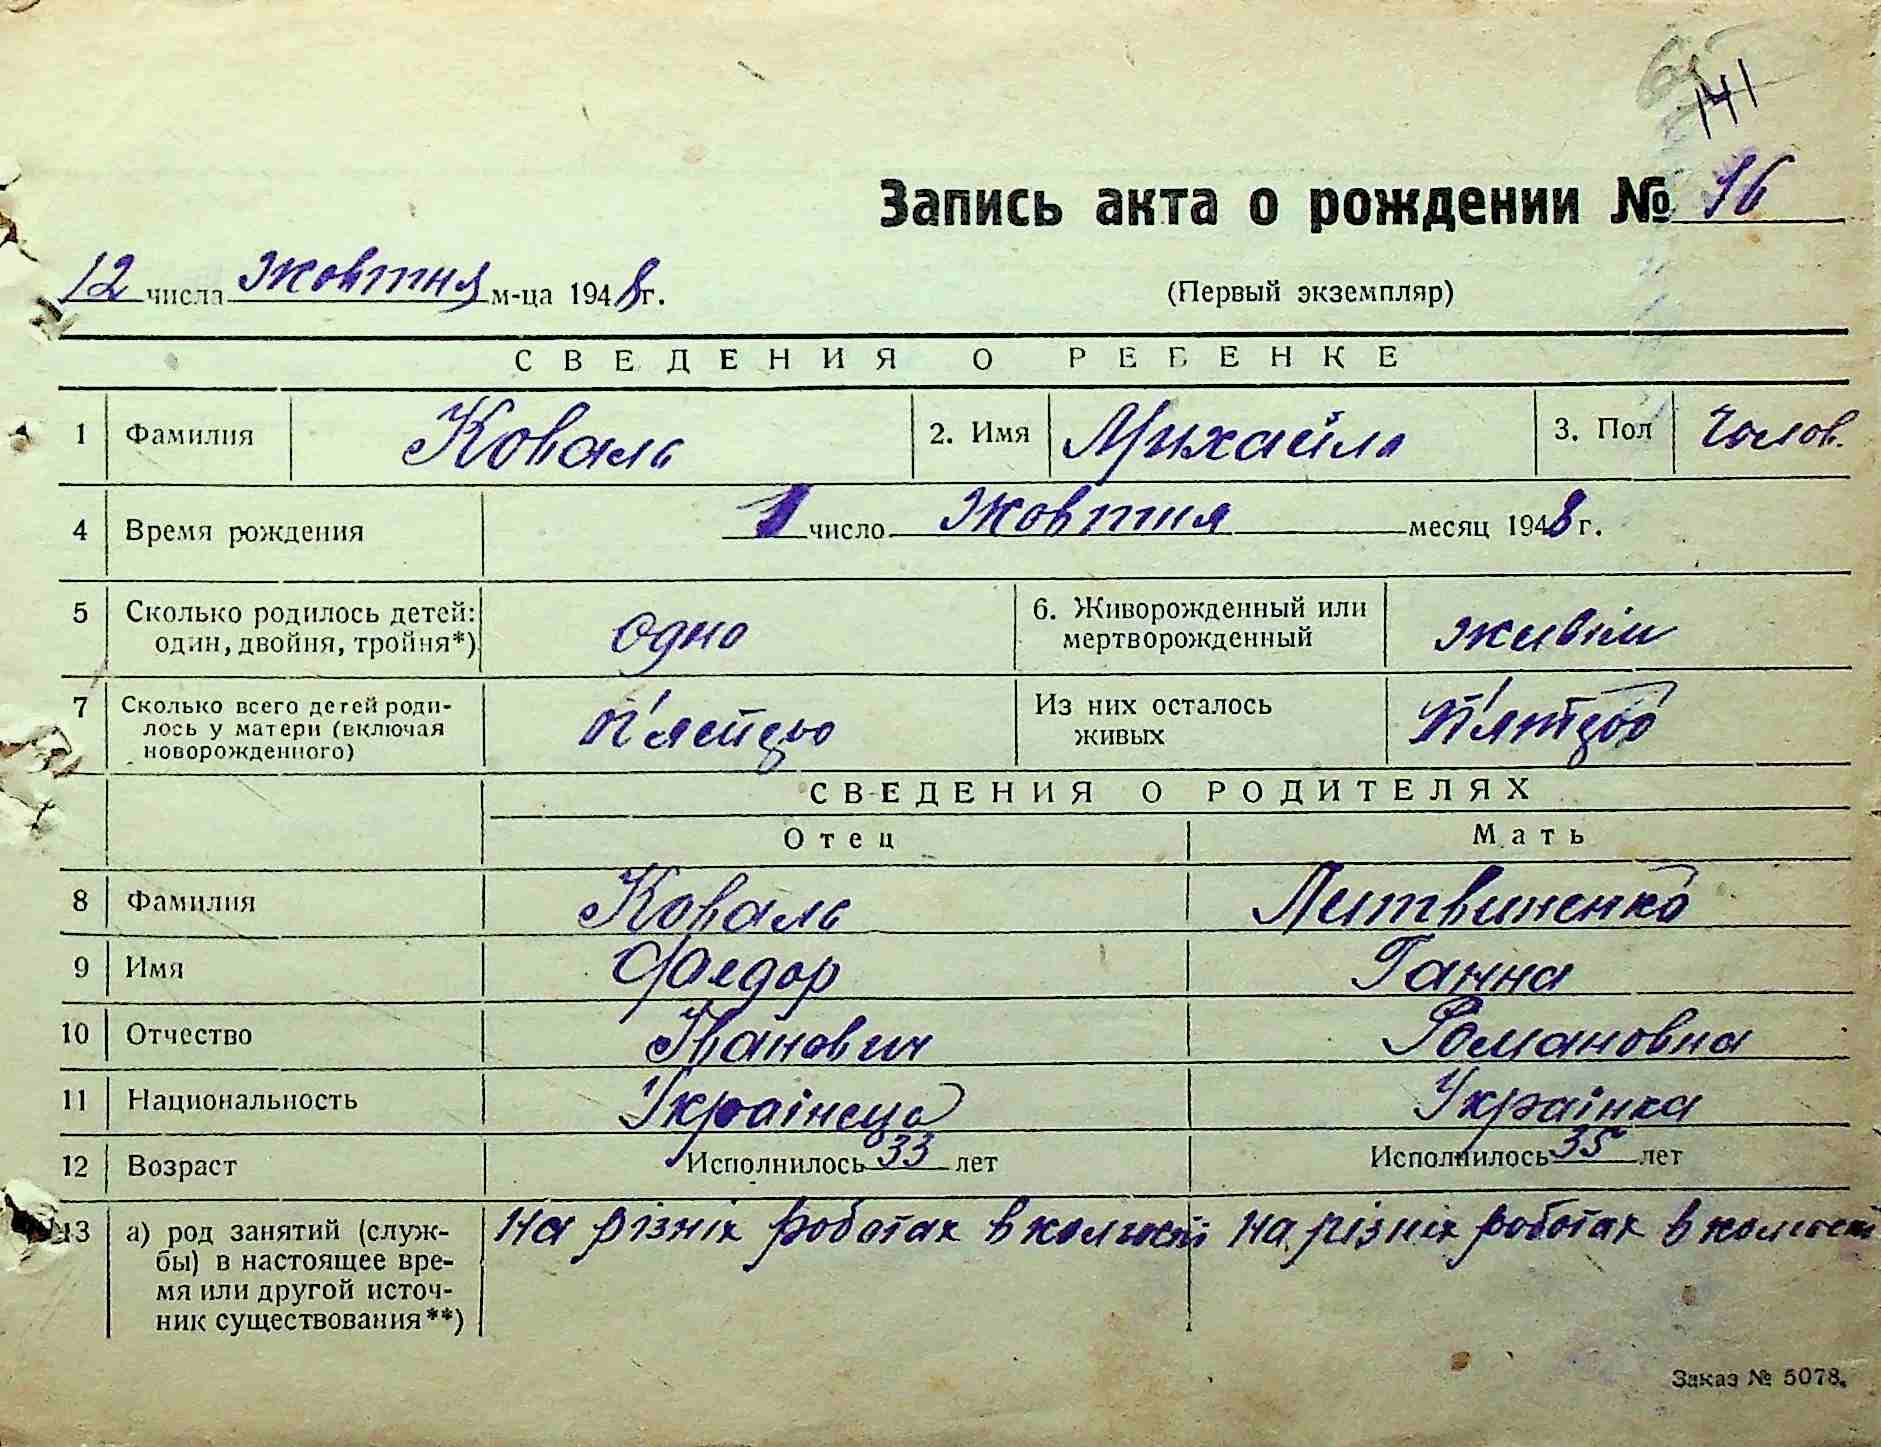 141
Запись акта о рождении № 16
12 числа жовтня м-ца 1948 г.
(Первый экземпляр)
СВЕДЕНИЯ О РЕБЕНКЕ
1 Фамилия Коваль 2. Имя Михайло 3. Пол Чолов.
4 Время рождения 1 число жовтня месяц 1948 г.
5 Сколько родилось детей: один, двойня, тройня*) одно 6. Живорожденный или мертворожденный живім
7 Сколько всего детей родилось у матери (включая новорожденного) п'ятеро Из них осталось живых п'ятеро
СВЕДЕНИЯ О РОДИТЕЛЯХ
Отец Мать
8 Фамилия Коваль Литвиненко
9 Имя Федор Ганна
10 Отчество Іванович Романовна
11 Национальность Українець Українка
12 Возраст Исполнилось 33 лет Исполнилось 35 лет
13 а) род занятий (служ-
бы) в настоящее вре-
мя или другой источ-
ник существования**)
На різніх роботах в колгоспі На різніх роботах в колгоспі
Заказ № 5078.